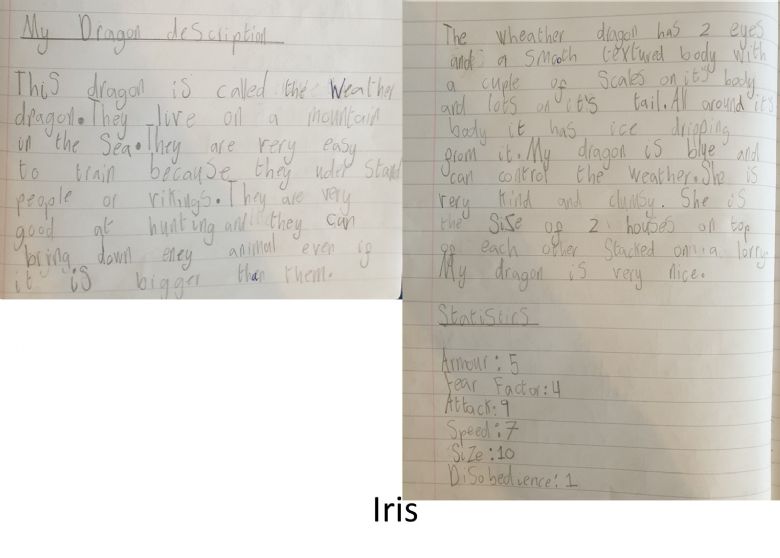 My Dragon description
This dragon is called the Weather
dragon. They live on a mountain
in the Sea. They are very easy
to train because they uder stand
people or vikings. They are very
good at hunting and they can
bring down eney animal even if
it is bigger than them.
The wheather dragon has 2 eyes
and a smooth textured body with
a cuple of scales on it's body
and lots on it's tail. All around it's
body it has ice dripping
from it. My dragon is blue and
can control the weather. She is
very kind and clumsy. She is
the size of 2 houses on top
of each other stacked on a lorry
My dragon is very nice.
Statistics
Armour: 5
Fear Factor: 4
Attack: 9
Speed: 7
Size: 10
Disobedience: 1
Iris